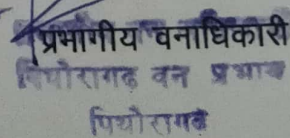 प्रभागीय वनाधिकारी
पिथोरागढ़ वन प्रभाग
पिथौरागढ़